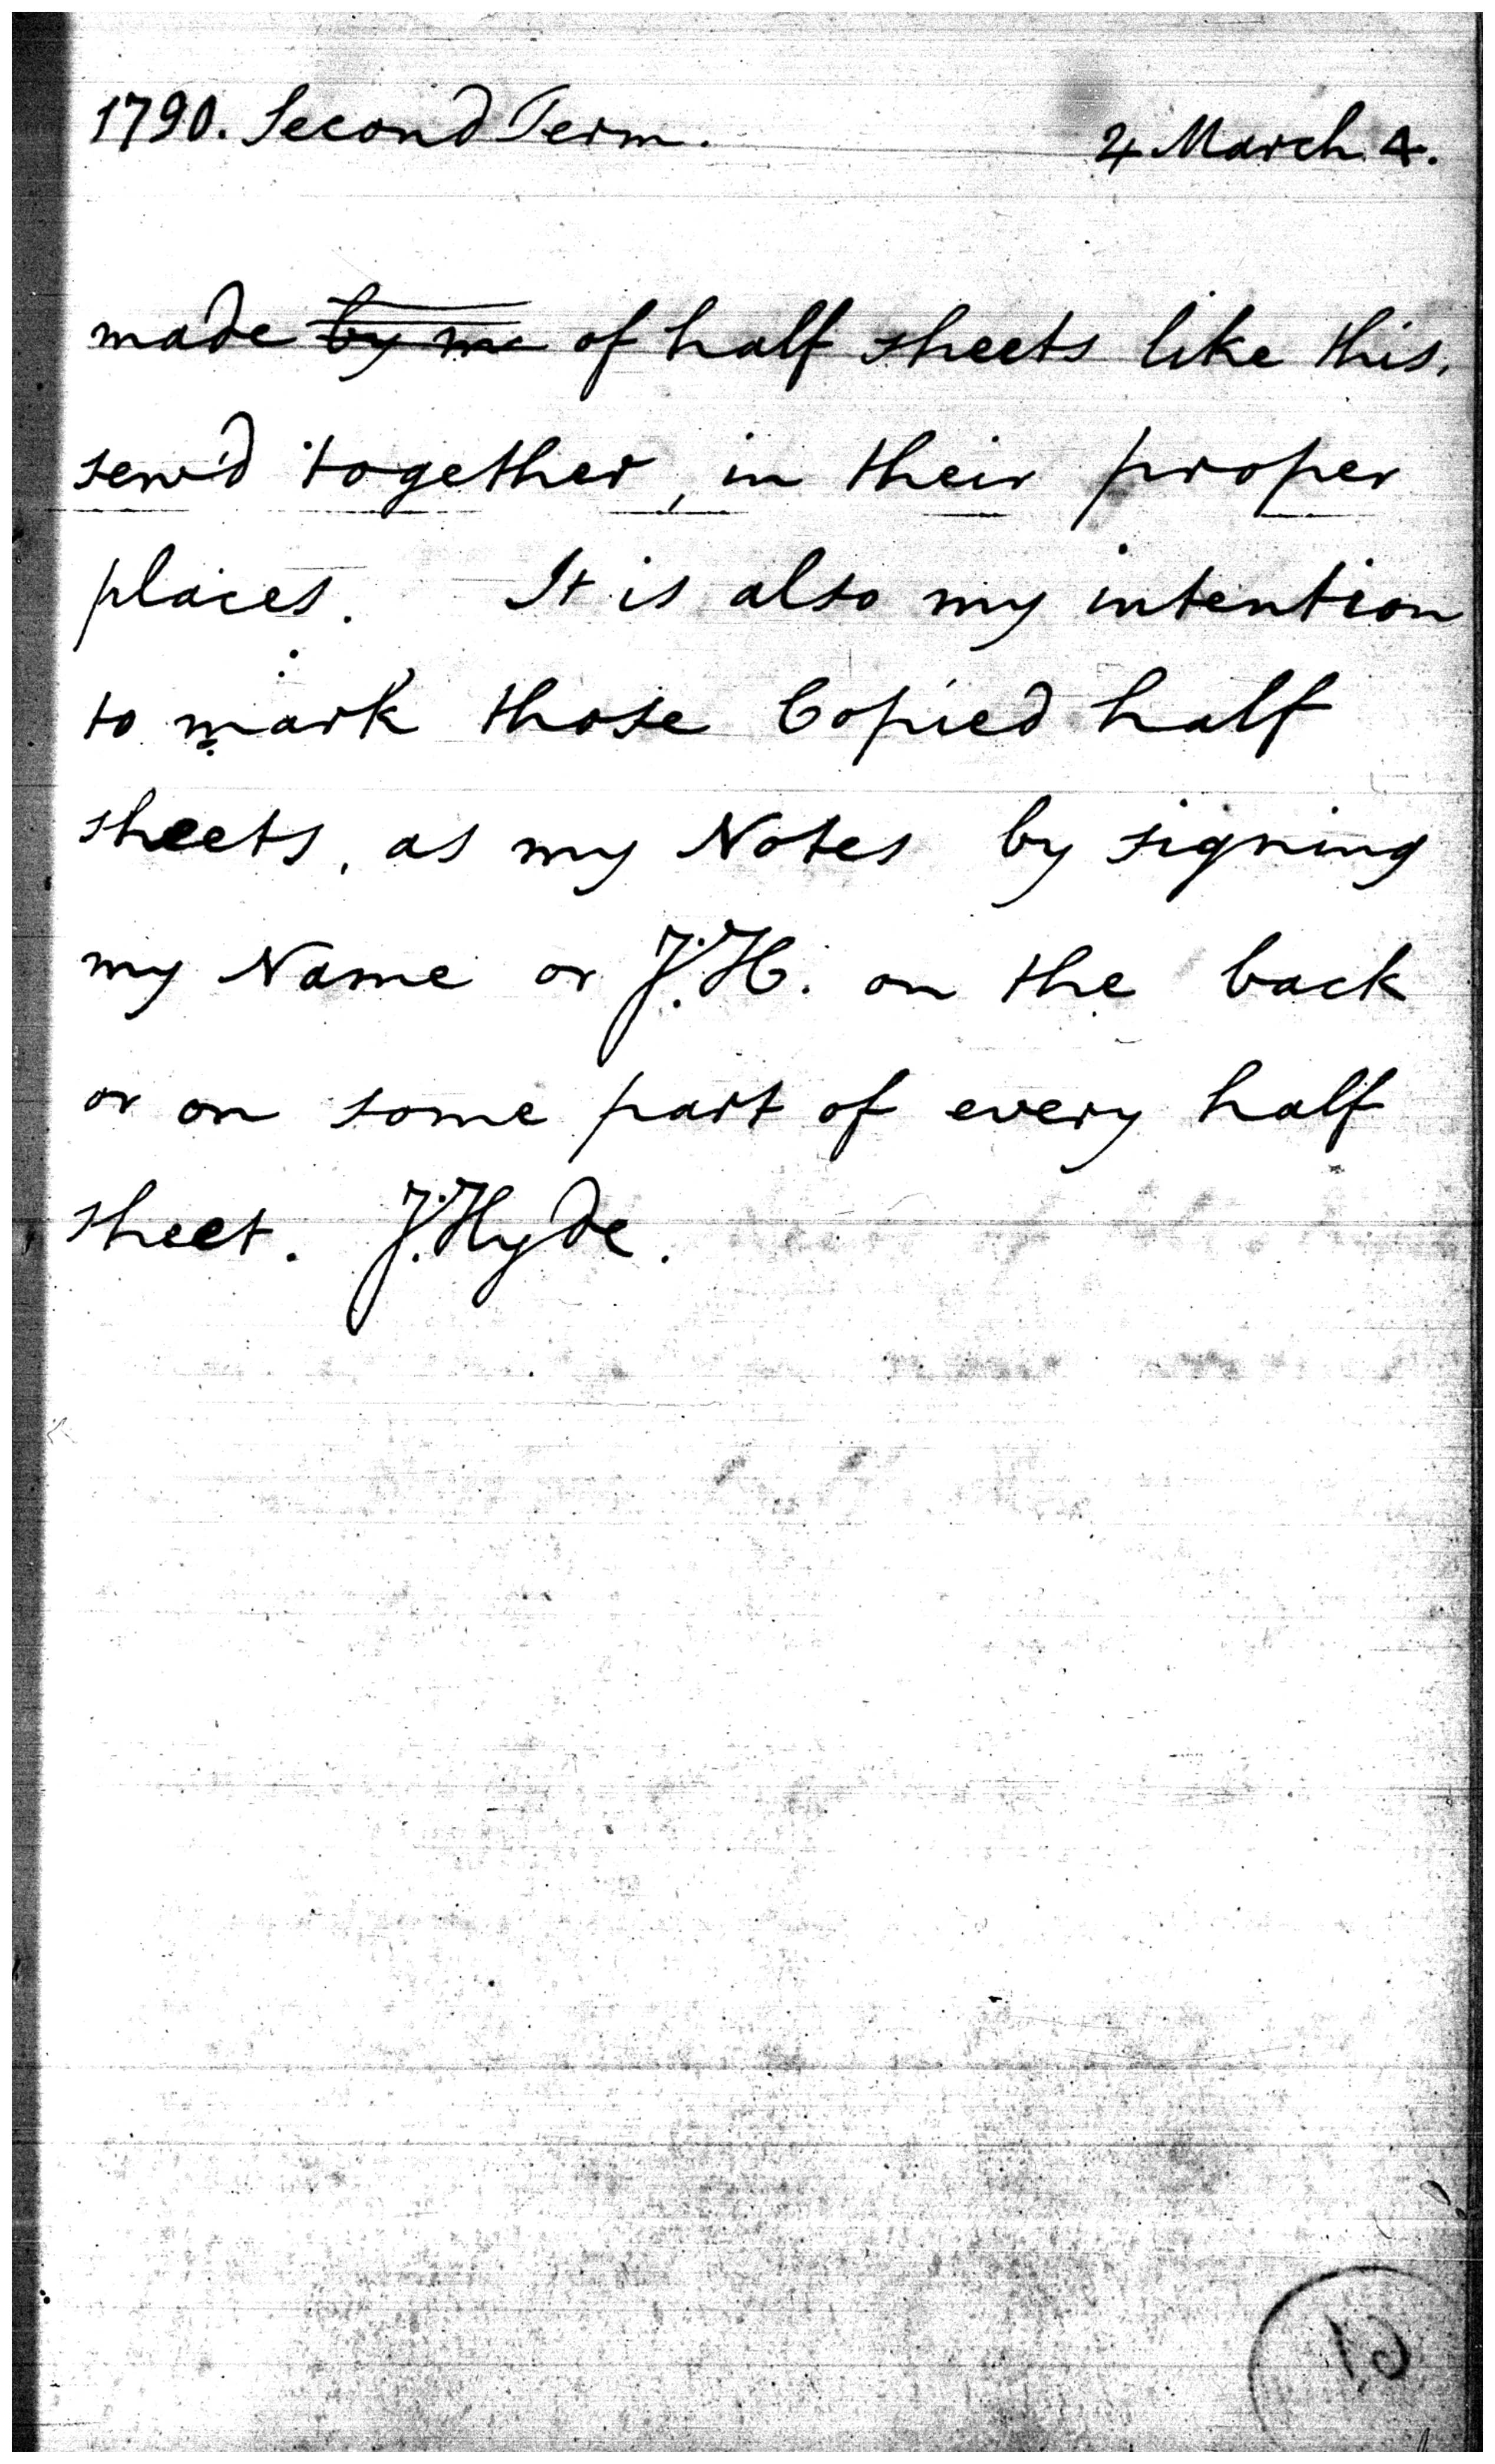 1790. Second Term. 4 March. 4.
made by me of half sheets like this,
sew'd together, in their proper
places. It is also my intention
to mark those Copied half
sheets, as my Notes by signing
my Name or J.H. on the back
or on some part of every half
sheet. J. Hyde.